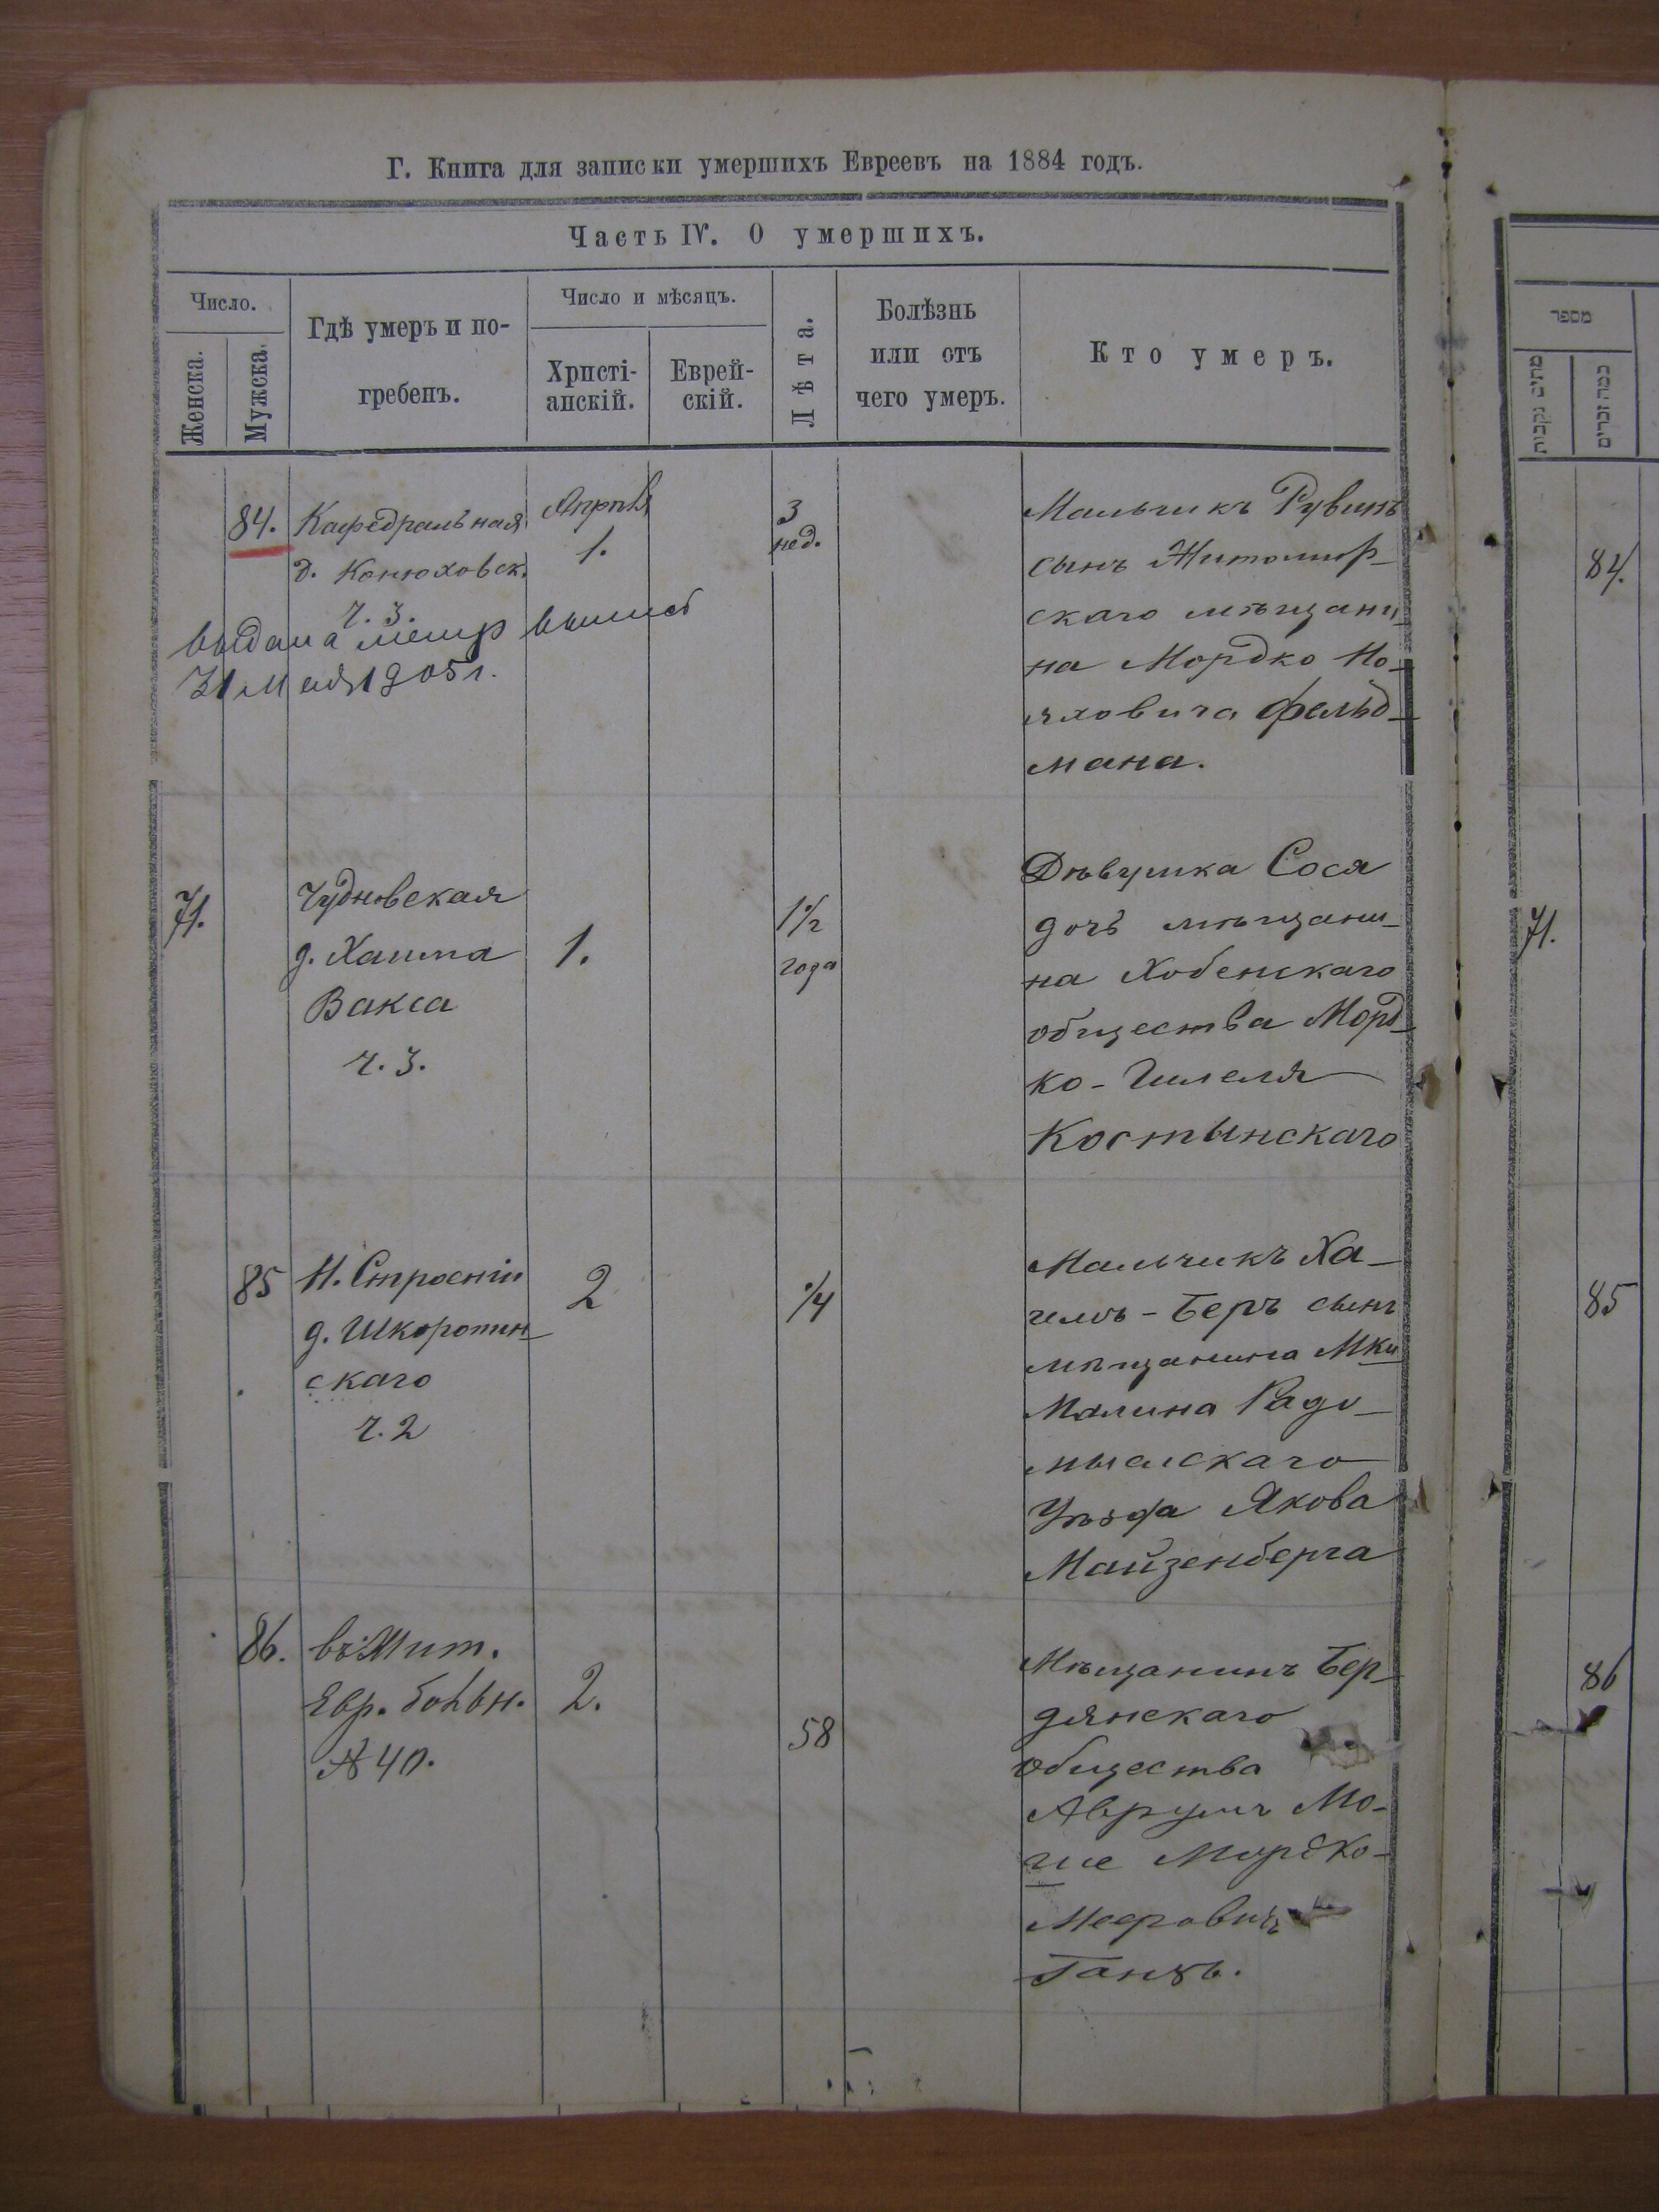 Г. Книга для записки умершихъ Евреевъ на 1884 годъ.
Часть IV. О умершихъ.
Число.
Женска.
Мужска.
Гдѣ умеръ и по-
гребенъ.
Число и мѣсяцъ.
Христі-
анскій.
Еврей-
скій.
Лѣта.
Болѣзнь
или отъ
чего умеръ.
Кто умеръ.
84.
Кафедральная
д. Конюховск.
ч. 3.
Апрѣля
1.
3
нед.
Мальчикъ Рувинъ
сынъ Житомир-
скаго мѣщани-
на Мордко Но-
яховича Фельд-
мана.
выдана метр выпись
31 Мая 1905 г.
71.
Чудновская
д. Хаима
Вакса
ч. 3.
1.
1 1/2
года
Дѣвушка Сося
дочь мѣщани-
на Хобенскаго
общества Морд-
ко-Гилеля
Костынскаго
85
Н. Строеніи
д. Шкоропин-
скаго
ч. 2
2
1/4
Мальчикъ Ха-
чель-Беръ сынъ
мѣщанина Мки
Малина Радо-
мысльскаго
Уѣзда Якова
Майзенберга
86.
въ Жит.
Евр. больн.
№ 40.
2.
58
Мѣщанинъ Бер-
дянскаго
общества
Аврумъ Мо-
ше Мордко-
Мееровичъ
Ганзъ.
מספר
מתים נקבות
כמה זכרים
84.
71.
85
86